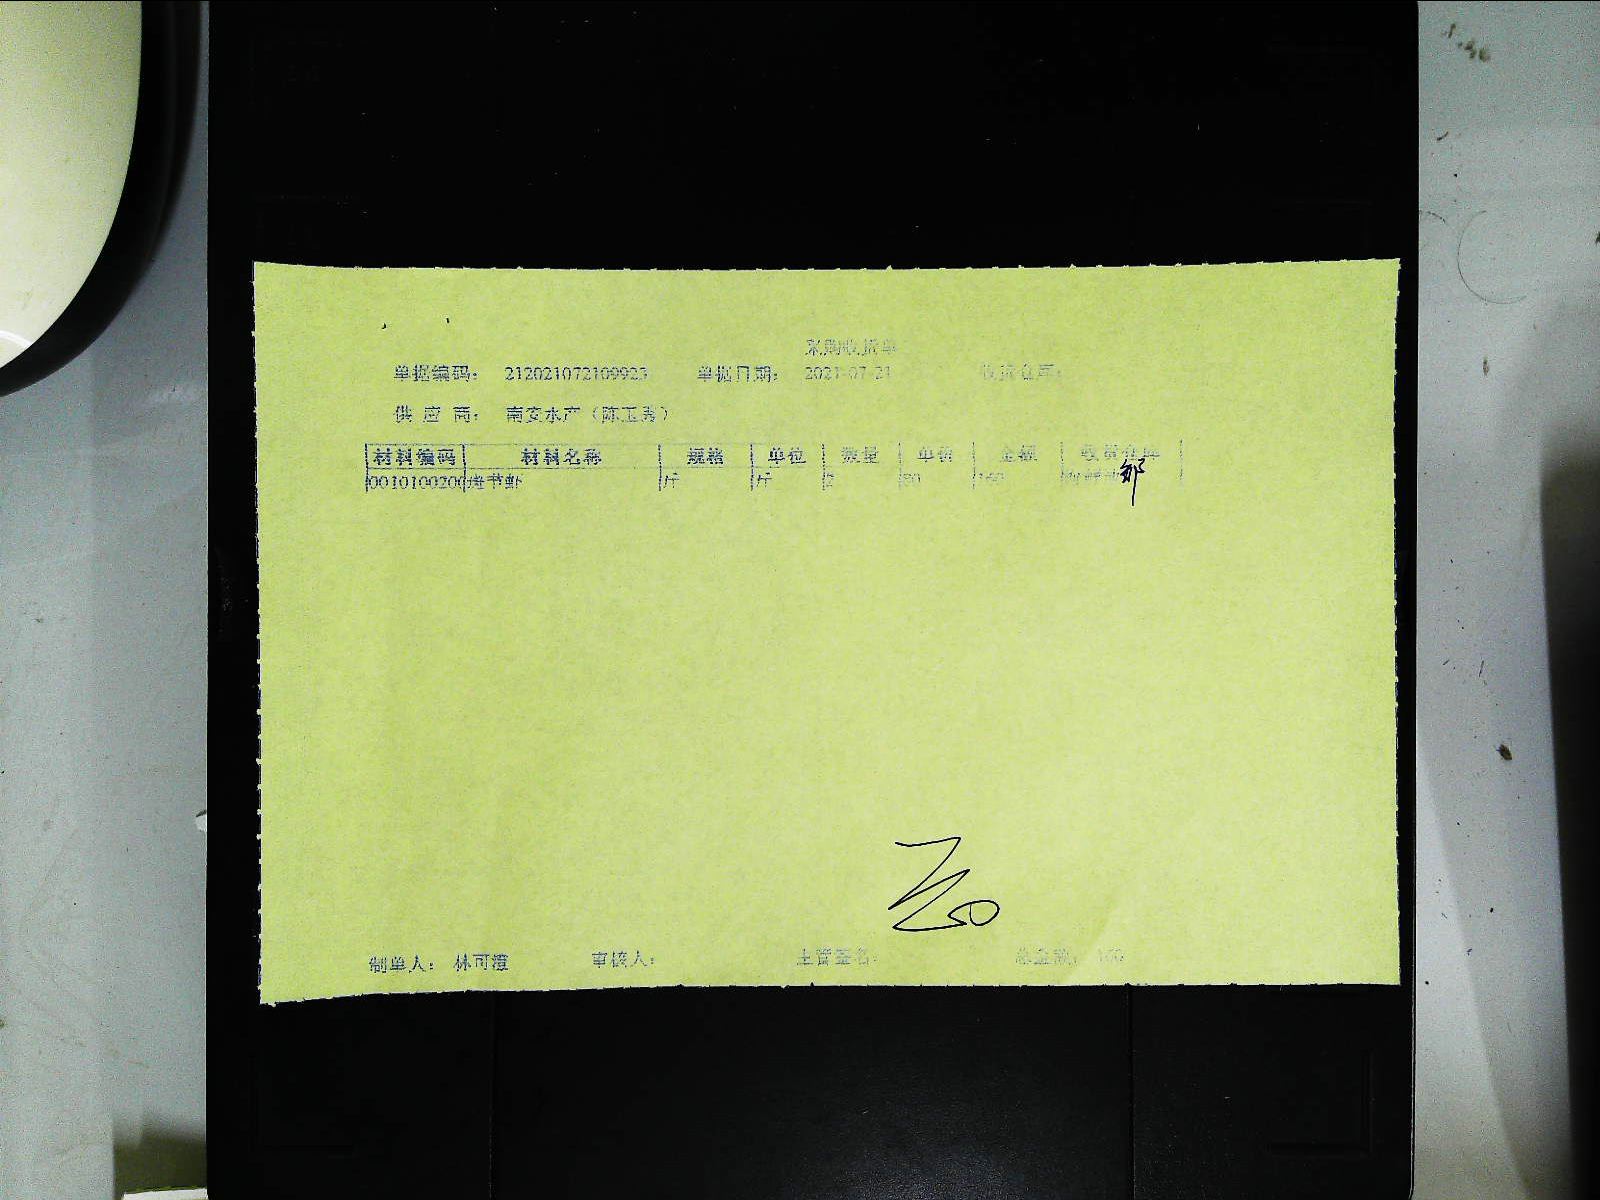 采购收货单
单据编码： 212021072109923 单据日期： 2021-07-21 收货仓库：
供 应 商： 南安水产（陈玉秀）
材料编码 材料名称 规格 单位 数量 单价 金额 收货仓库
0010100200 斑节虾 斤 斤 2 80 160
制单人： 林可澄 审核人： 主管签名： 总金额： 160